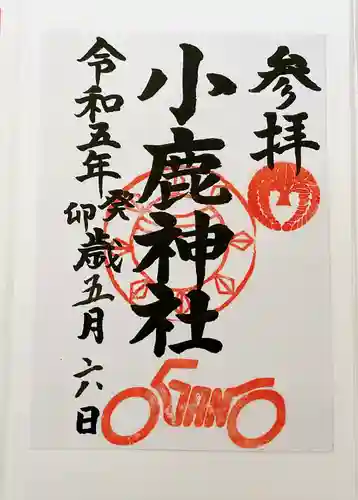 参拝
小鹿神社
令和五年癸卯歳五月六日